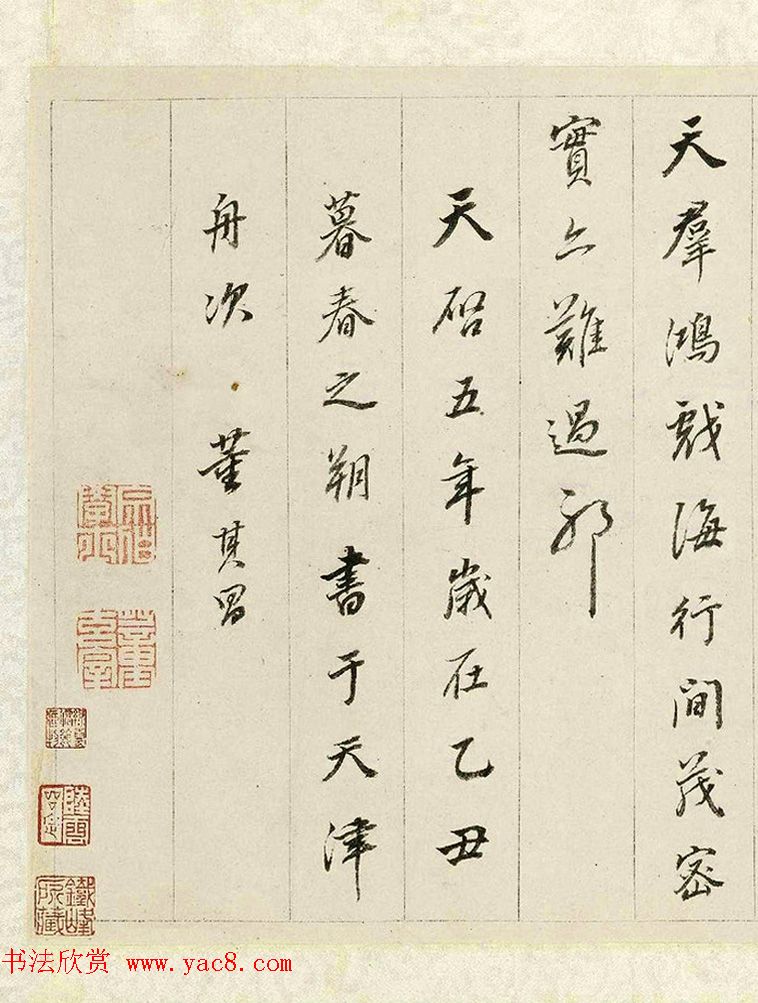 天羣鴻戲海行間茂密
實亦難過耶
天啓五年歲在乙丑
暮春之朔書于天津
舟次董其昌
书法欣赏 www.yac8.com